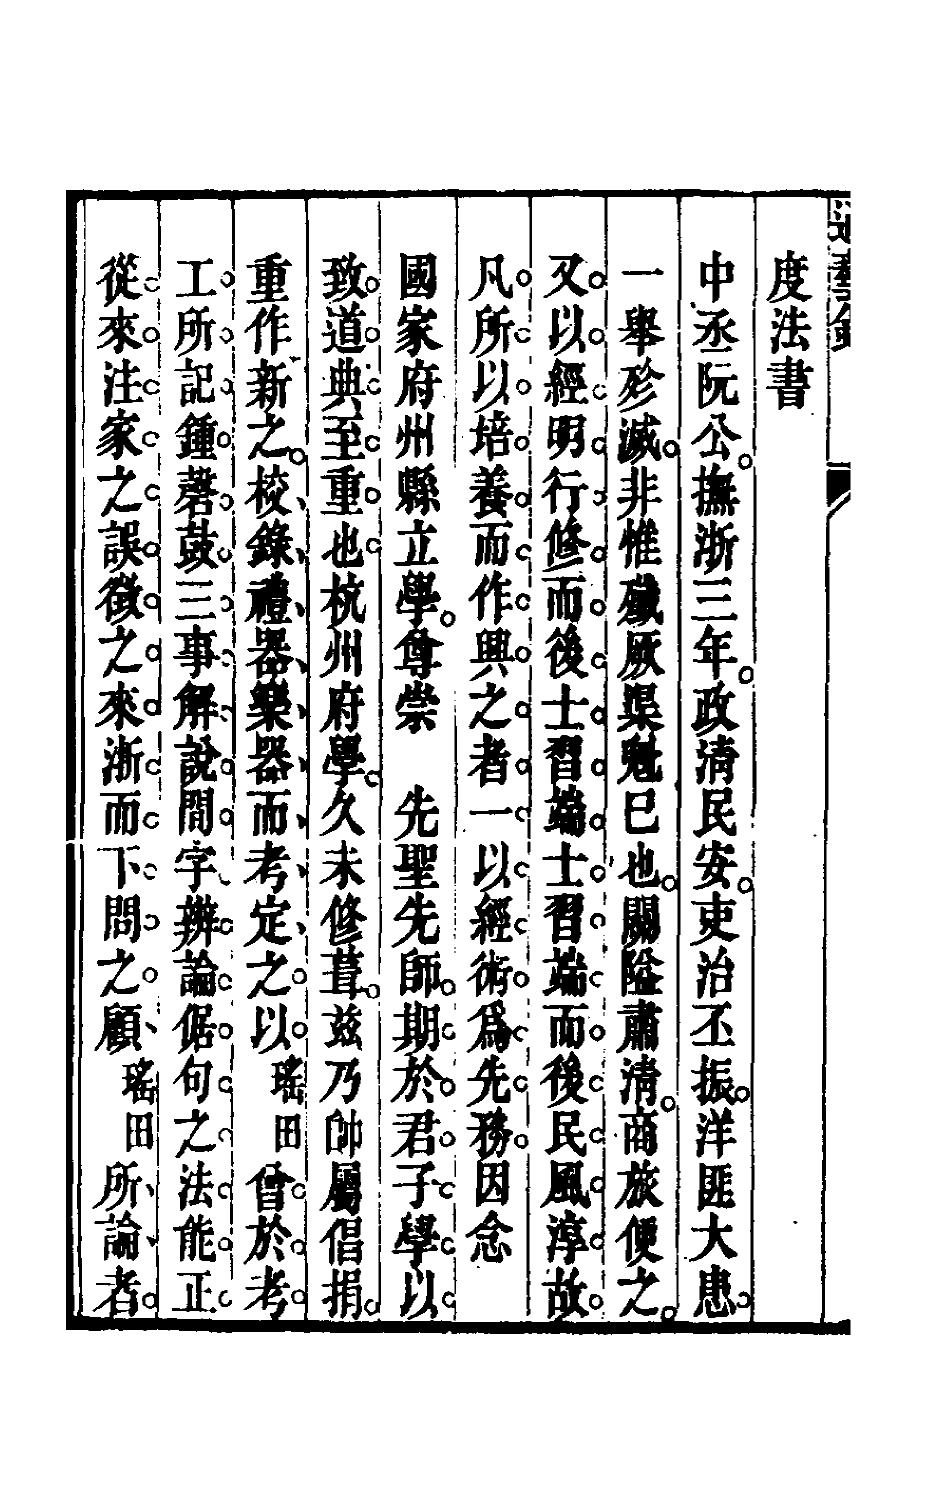 通藝錄
度法書
中丞阮公。撫浙三年。政清民安。吏治丕振。洋匪大患。
一舉殄滅。非惟殲厥渠魁已也。關隘肅清。商旅便之。
又以經明行修而後士習端士習端而後民風淳故
凡所以培養而作興之者一以經術爲先務因念
國家府州縣立學。尊崇　先聖先師。期於君子學以
致道典至重也杭州府學。久未修葺。茲乃帥屬倡捐。
重作新之。校錄禮器樂器而考定之以瑤田曾於考
工所記鍾磬鼓三事解說間字辨論倨句之法能正
從來注家之誤徵之來浙而下問之顧瑤田所論者